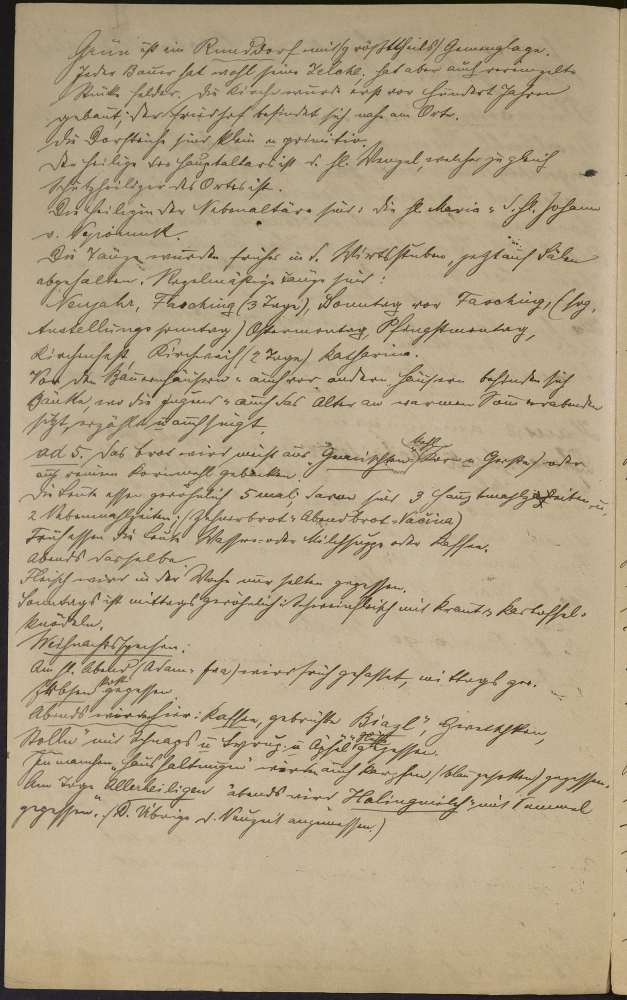 Grün ist ein Runddorf mit (größttheils) Gemenglage.
Jeder Bauer hat wohl seine, hat aber auch vereinzelte
Stücke Felder. Die Kirche wurde erst vor hundert Jahren
gebaut; der Friedhof befindet sich nahe am Orte.
Die Dorfteiche sind klein u primitiv.
Der Heilige des Hauptaltares ist d. hl. Wenzel, welcher zugleich
Schutzheiliger des Ortes ist.
Die Heiligen der Nebenaltäre sind: die hl. Maria u. d. hl. Johann
v. Nepomuk.
Die Tänze wurden früher in d. Wirtsstuben, jetzt auch in Sälen
abgehalten. Regelmäßige Tänze sind:
Neujahr, Fasching (3 Tage), Sonntag vor Fasching, (sog.
Anstellungssonntag) Ostermontag, Pfingstmontag,
Kirchenfest, Kirchweih (2 Tage) Katharina.
Vor den Bauernhäusern u auch vor andern Häusern befinden sich
Bänke wo die Jugend u auch das Alter an warmen Sommerabenden
sitzt, erzählt u auch singt.
ad 5. Das Brot wird meist aus Gemischtem Mehl (Korn u Gerste) oder
aus reinem Kornmehl gebacken.
Die Leute essen gewöhnlich 5 mal; davon sind 3 Hauptmahlzeiten u.
2 Nebenmahlzeiten. (Zehnerbrot u Abendbrot = Vačina)
Früh essen die Leute Wasser- oder Milchsuppe oder Kaffee.
Abends dasselbe.
Fleisch wird in der Woche nur selten gegessen.
Sonntags ist mittags gewöhnlich Schweinefleisch mit Kraut u Kartoffel-
knödeln.
Weihnachtsspeisen.
Am hl. Abend (Adam u Eva) wird früh gefastet, mittags ger.
Erbsen gegessen
Abends wieder hier: Kaffee, gebrühte Zwetschken,
Stolln" mit Schnaps u Syrup, u Äpfel u Nüsse gegessen.
In manchen Haushaltungen werden auch Karpfen (blau gesotten) gegessen.
Am Tage Allerheiligen abends wird Halingmilch" mit Semmel
gegessen". (D. Übrige d. Neuzeit angemessen.)